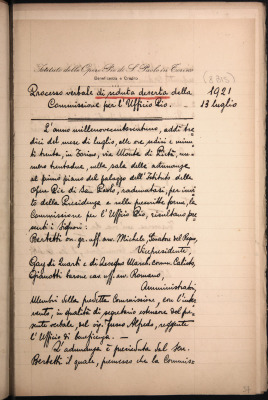 Istituto delle Opere Pie di S. Paolo in Torino
Beneficenza e Credito
Processo verbale di seduta deserta della
Commissione per l'Ufficio Pio.
1921
13 luglio
L'anno millenovecentoventuno, addì tre
dici del mese di luglio, alle ore sedici e minu
ti trenta, in Torino, via Monte di Pietà, nu
mero trentadue, nella sala delle adunanze,
al primo piano del palazzo dell'Istituto delle
Opere Pie di San Paolo, radunatasi, per invi
to della Presidenza e nelle prescritte forme, la
Commissione per l'Ufficio Pio, risultano pre
senti i Signori:
Bertetti gr. uff. avv. Michele, Senatore del Regno,
Vicepresidente,
Gay di Quarti e di March. comm. Calisto,
Gianotti barone cav. uff. avv. Romano,
Amministratori,
Membri della predetta Commissione, con l'inter
vento, in qualità di segretario estensore del pre
sente verbale, del sig. Alfredo, reggente
l'Ufficio di beneficenza. —
L'adunanza è presieduta dal sen.
Bertetti il quale, premesso che la Commiss